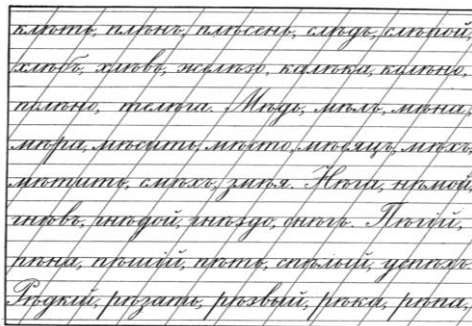 клѣть, плѣнъ, плѣсень, слѣдъ, слѣпой,
хлѣбъ, хлѣвъ, желѣзо, калѣка, колѣно,
полѣно, телѣга. Мѣдь, мѣлъ, мѣна,
мѣра, мѣсить, мѣсто, мѣсяцъ, мѣхъ,
мѣтить, смѣхъ, змѣя. Нѣга, нѣмой,
гнѣвъ, гнѣдой, гнѣздо, снѣгъ. Пѣгій,
пѣна, пѣшій, пѣть, спѣлый, успѣхъ.
Рѣдкій, рѣзать, рѣзвый, рѣка, рѣпа,